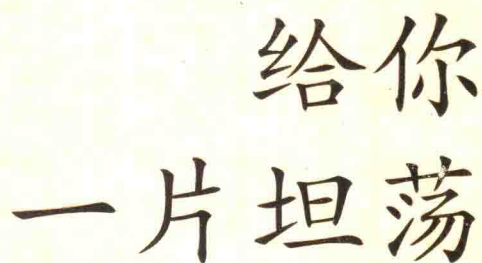 给你
一片坦荡